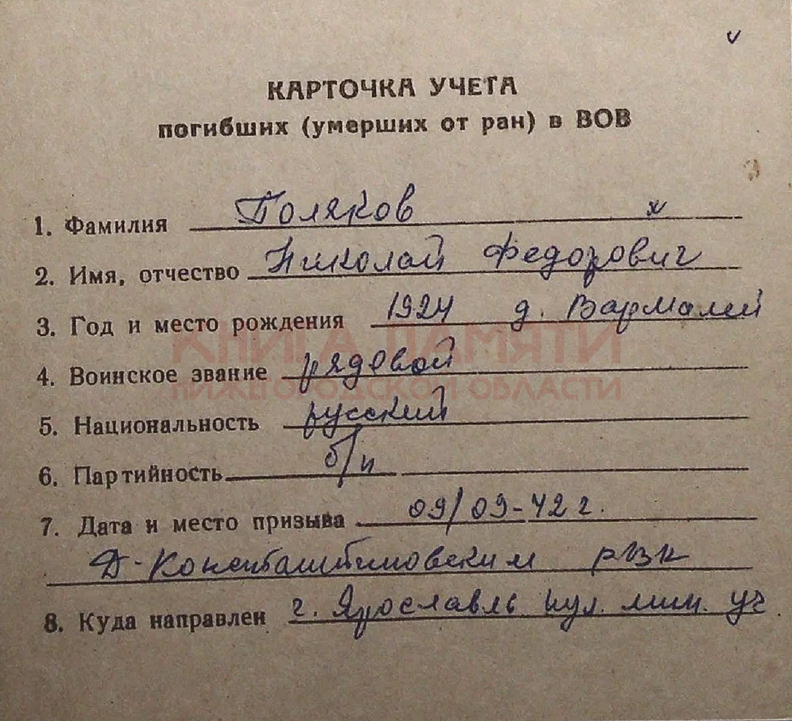 КАРТОЧКА УЧЕТА
погибших (умерших от ран) в ВОВ
1. Фамилия Поляков
2. Имя, отчество Николай Федорович
3. Год и место рождения 1924 д. Вармалей
КНИГА ПАМЯТИ
4. Воинское звание рядовой
НИЖЕГОРОДСКОЙ ОБЛАСТИ
5. Национальность русский
6. Партийность б/п
7. Дата и место призыва 09/09-42 г.
Д-Константиновским РВК
8. Куда направлен г. Ярославль пул. мин. уч